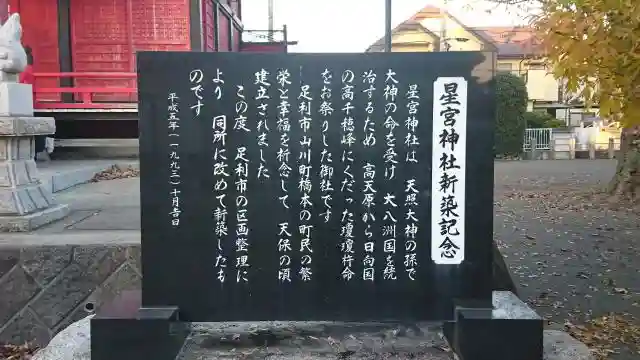 星宮神社新築記念
星宮神社は　天照大神の孫で
大神の命を受け　大八洲国を統
治するため　高天原から日向国
の高千穂峰にくだった瓊瓊杵命
をお祭りした御社です
足利市山川町橋本の町民の繁
栄と幸福を祈念して　天保の頃
建立されました
この度　足利市の区画整理に
より　同所に改めて新築したも
のです
平成五年（一九九三）十月吉日